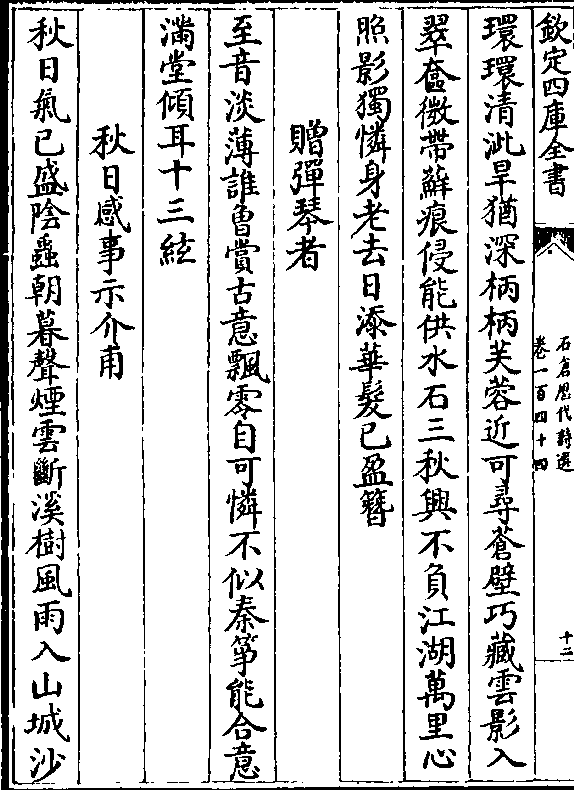 欽定四庫全書
石倉歷代詩選
卷一百四十四
十二
環環清泚旱猶深柄柄芙蓉近可尋蒼壁巧藏雲影入
翠奩微帶蘚痕侵能供水石三秋興不負江湖萬里心
照影獨憐身老去日添華髮已盈簪
贈彈琴者
至音淡薄誰曽賞古意飄零自可憐不似秦箏能合意
滿堂傾耳十三絃
秋日感事示介甫
秋日氣已盛陰蟲朝暮聲煙雲斷溪樹風雨入山城沙